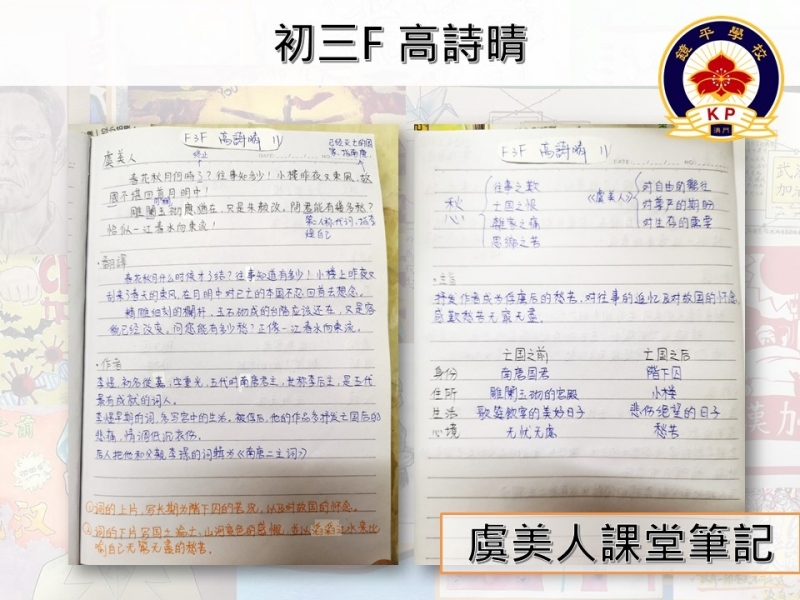 初三F 高詩晴
鏡平學校
KP
澳門
F3F 高詩晴 11
虞美人
终止
已经灭亡的国家,指南唐
春花秋月何時了?往事知多少!小樓昨夜又東風,故
國不堪回首月明中!
雕闌玉砌應猶在,只是朱顏改。問君能有幾多愁?
恰似一江春水向東流!
第二人称代词,
·翻譯
春花秋月什么时候才了结?往事知道有多少!小樓上昨夜又
刮来了春天的東风,在月明中对已亡的本国不忍回首去想念。
精雕细刻的欄杆,玉石砌成的台階应该还在,只是容
貌已经改变。问您能有多少愁?正像一江春水向東流。
·作者
李煜,初名從嘉,字重光,五代时南唐君主,史称李后主,是五代
最有成就的词人。
李煜早期的词,多写宫中的生活。被俘后,他的作品多抒发亡国后的
悲痛,情调低沉哀伤。
后人把他和父親李璟的词輯为《南唐二主词》
①词的上片,写长期为階下囚的苦况,以及对故国的怀念。
②词的下片写国土淪亡、山河变色的感慨,並以滔滔江水来比
喻自己无窮无盡的愁苦。
F3F 高詩晴 11
愁
往事之歎
亡国之恨
離家之痛
思鄉之苦
《虞美人》
对自由的嚮往
对尊严的期盼
对生存的需要
·主旨
抒发作者成为俘虜后的愁苦,对往事的追忆及对故国的怀念,
感歎愁苦无窮无盡。
亡国之前 亡国之后
身份 南唐国君 階下囚
住所 雕闌玉砌的宮殿 小楼
生活 歌筵歡宴的美好日子 悲伤绝望的日子
心境 无忧无慮 愁苦
虞美人課堂筆記